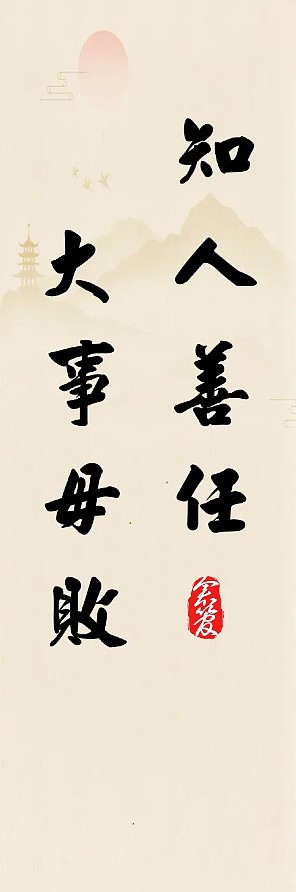 知人善任
大事毋敗